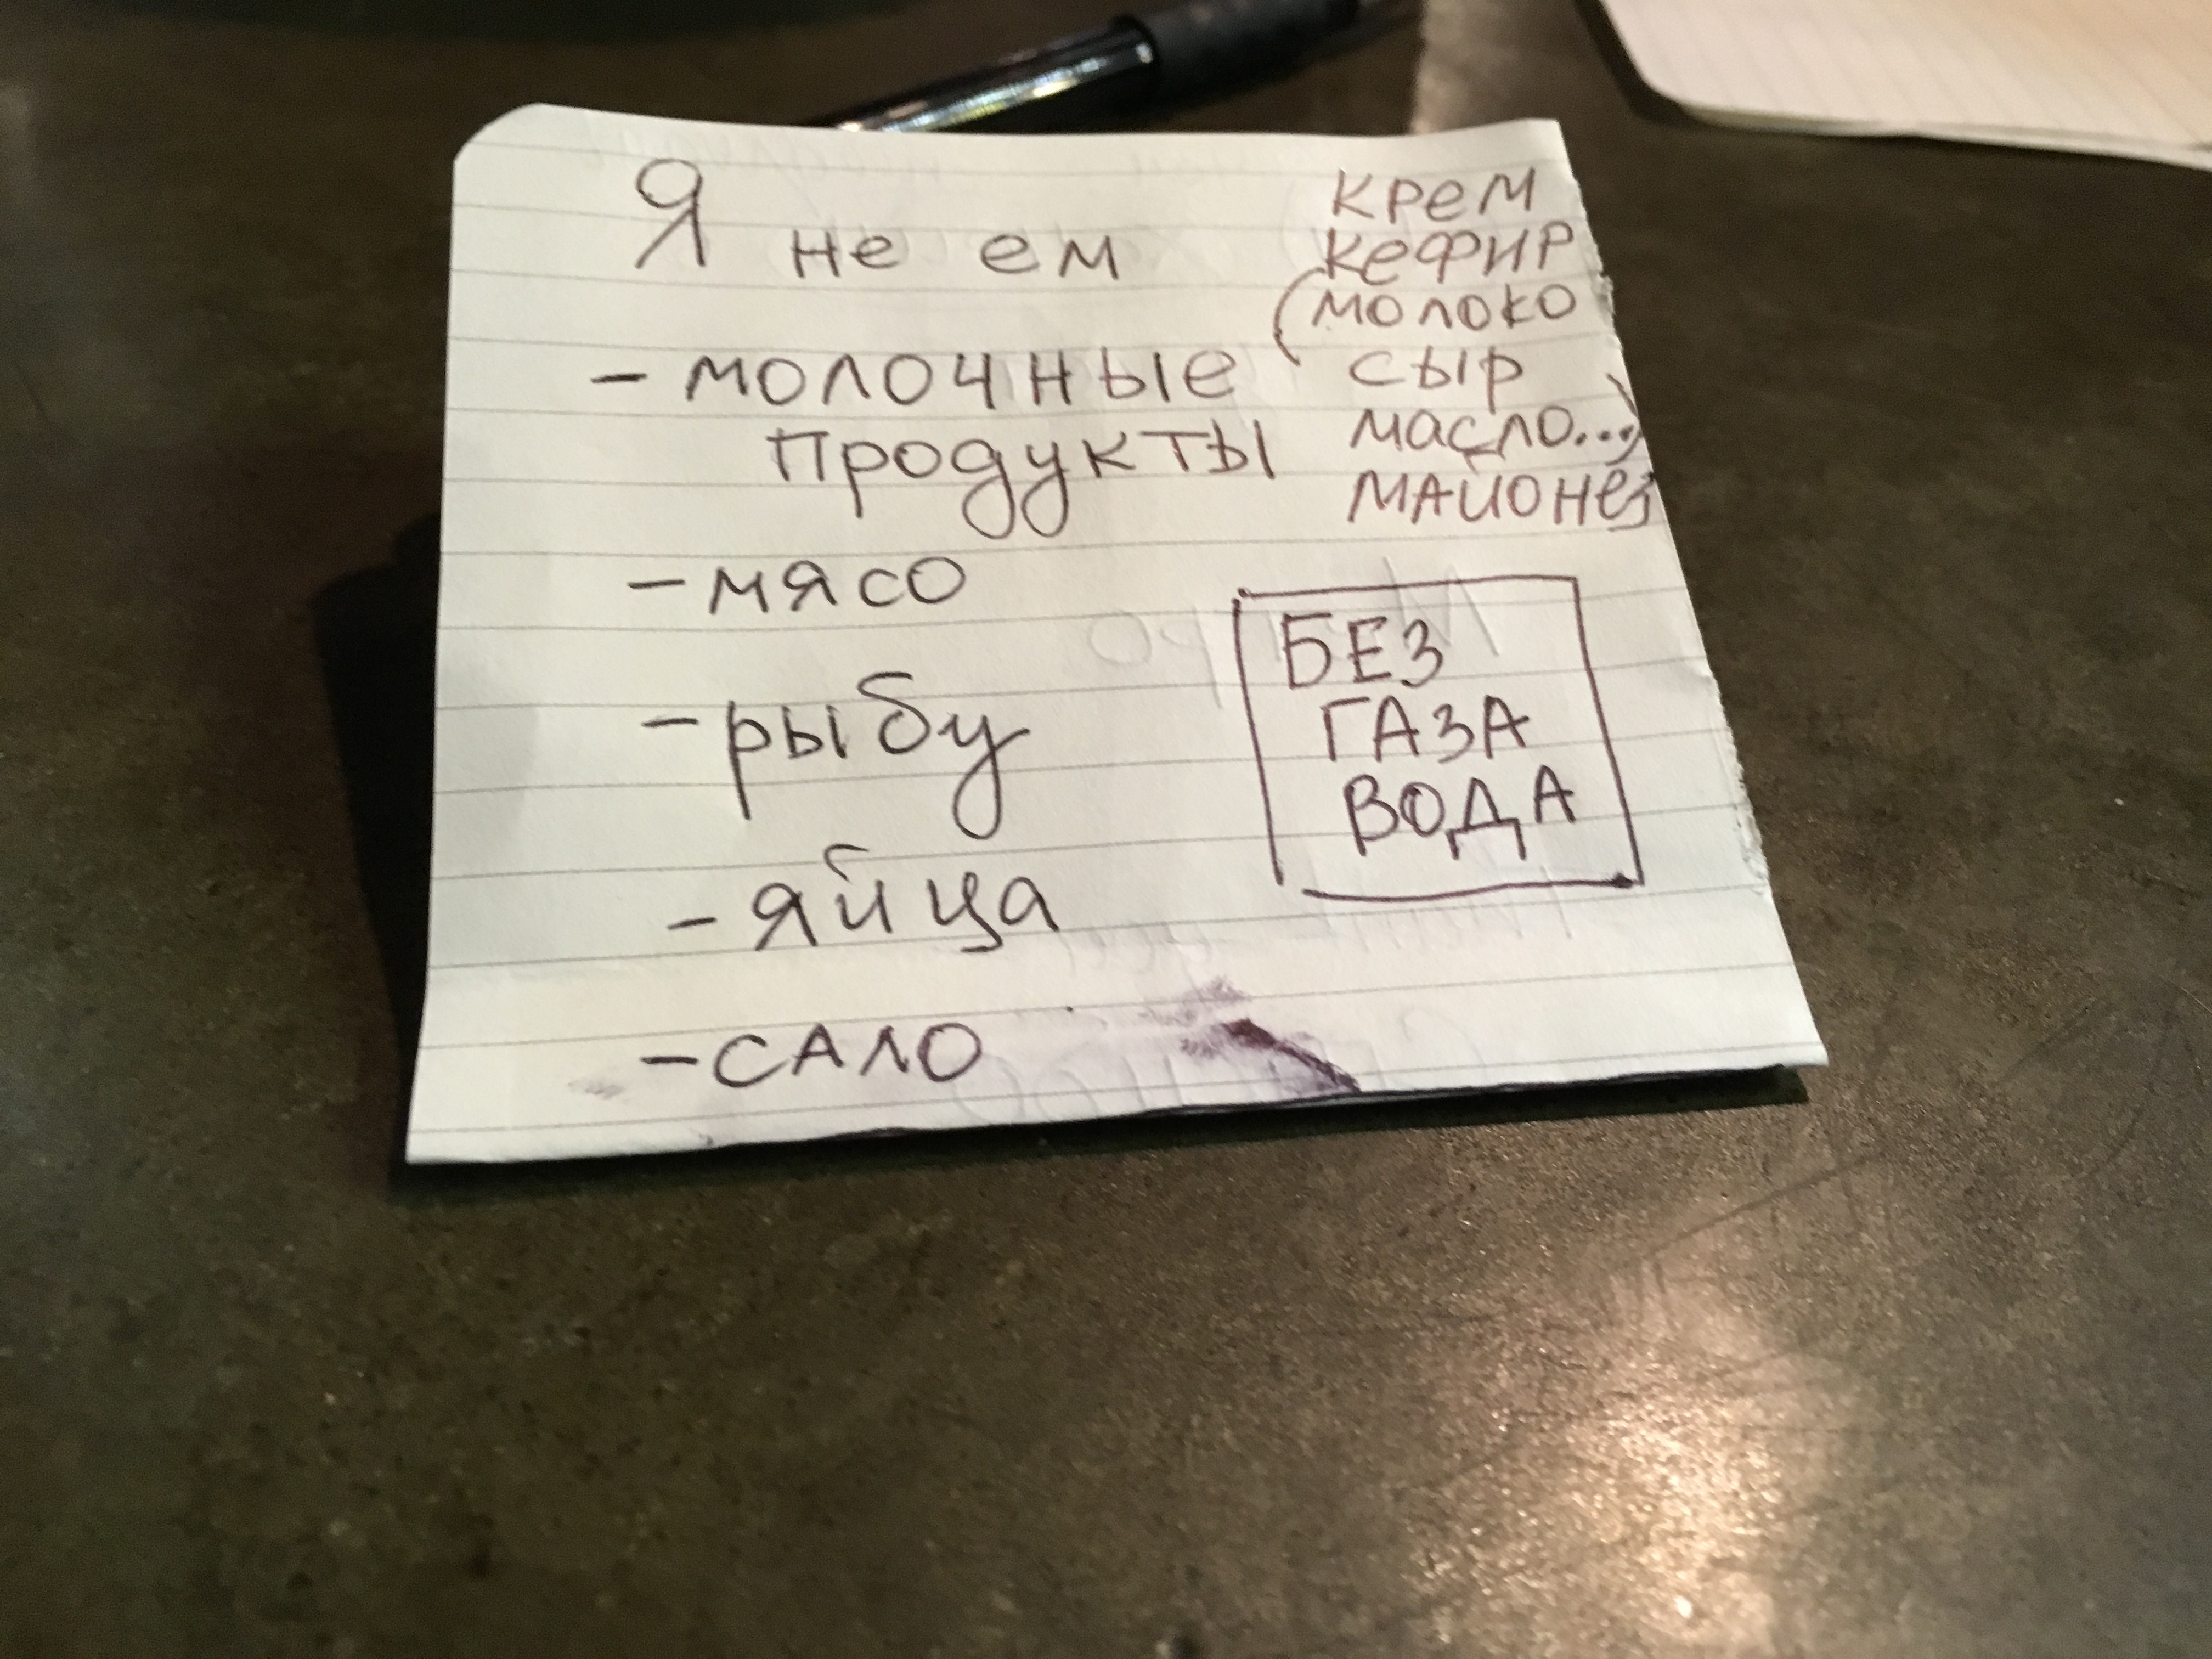 Я не ем
- молочные
продукты
- мясо
- рыбу
- яйца
- сало
крем
кефир
(молоко
сыр
масло...)
майонез
БЕЗ
ГАЗА
ВОДА